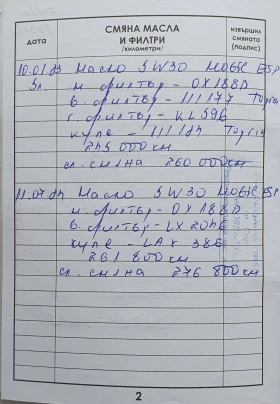 дата
СМЯНА МАСЛА
И ФИЛТРИ
/километри/
извършил
смяната
(подпис)
10.01.23 Масло 5W30 MOBIL ESP
5л. м. филтър - OX188D
в. филтър - 111177
г. филтър - KL596
купе - 111184
245 000 км
сл. смяна 260 000 км
11.07.24 Масло 5W30 MOBIL ESP
м. филтър - OX188D
в. филтър - LX2046
купе - LAK 386
261 800 км
сл. смяна 276 800 км
2